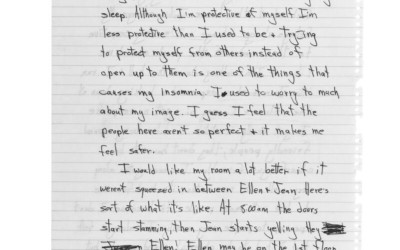 sleep. Although I'm protective of myself I'm
less protective than I used to be + trying
to protect myself from others instead of
open up to them is one of the things that
causes my insomnia. I used to worry to much
about my image. I guess I feel that the
people here aren't so perfect + it makes me
feel safer.
I would like my room a lot better if it
werent squeezed in between Ellen + Jean. Here's
sort of what it's like. At 8:00am the doors
start slamming, then Jean starts yelling Hey
Ellen. Ellen may be on the 1st floor